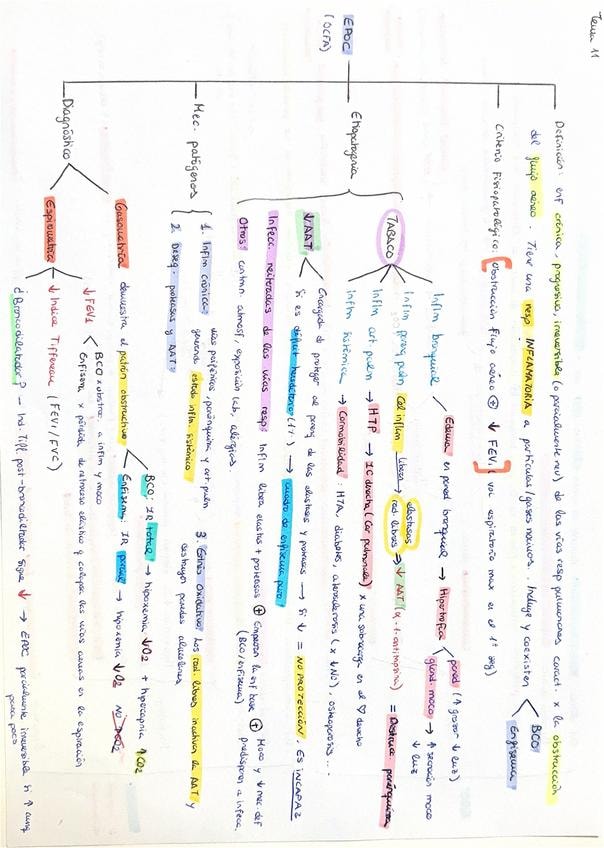 Tema 11
EPOC
(OCFA)
Definición: enf crónica, progresiva, irreversible (o parcialmente rev) de las vías resp pulmonares caract. x la obstrucción
del flujo aéreo. Tiene una resp INFLAMATORIA a partículas/gases nocivos. Incluye y coexisten
BCO
Enfisema
Criterio Fisiopatológico: [obstrucción flujo aéreo ⊕ ↓ FEV1] (vol espiratorio max en el 1º seg)
Etiopatogenia
TABACO
Inflam bronquial
Edema en pared bronquial → Hipertrofia
pared (↑ grosor ↓ luz)
gland. moco → ↑ secreción moco
↓ luz
Inflam parenq pulm
Cel inflam libera → elastasas
rad. libres ⇒ ↓ AAT (α-1-antitripsina) = Destrucc. parénquima
Inflam art. pulm → HTP → IC derecha (Cor pulmonale) x una sobrecarga en el ♡ derecho
Inflam sistémica → Comorbilidad: HTA, diabetes, aterosclerosis (x ↓ NO), osteoporosis ...
↓ AAT
Encargada de proteger al parenq de las elastasas y proteasas → Si ↓ = NO PROTECCIÓN, ES INCAPAZ
Si es déficit hereditario (1%) → cuadro de enfisema puro
Infecc. reiteradas de las vías resp: Inflam libera elastasa + proteasas ⊕ Empeoran la enf base ⊕ Moco y ↓ mec. def
(BCO/enfisema) predispone a infecc.
Otros: contam. atmosf, exposición lab, alérgicos.
Mec. patógenos
1. Inflm crónica: vías periféricas, parénquima y art. pulm
genera estado inflm. sistémico
2. Deseq. proteasas y AAT
3. Estrés Oxidativo: Los rad. libres inactivan la AAT y
destruyen paredes alveolares
Diagnóstico
Gasometría: demuestra el patrón obstructivo
BCO: IR total → hipoxemia ↓O2 + hipercapnia ↑CO2
Enfisema: IR parcial → hipoxemia ↓O2 NO ↑CO2
Espirometría
↓ FEV1
BCO x obstruc. a inflm y moco
Enfisema x pérdida de retroceso elástico y colapsa las vías aéreas en la espiración
↓ Índice Tiffeneau (FEV1/FVC)
¿Broncodilatador? – Ind. Tiff. post-broncodilatador sigue ↓ → EPOC parcialmente irreversible si ↑ aunq